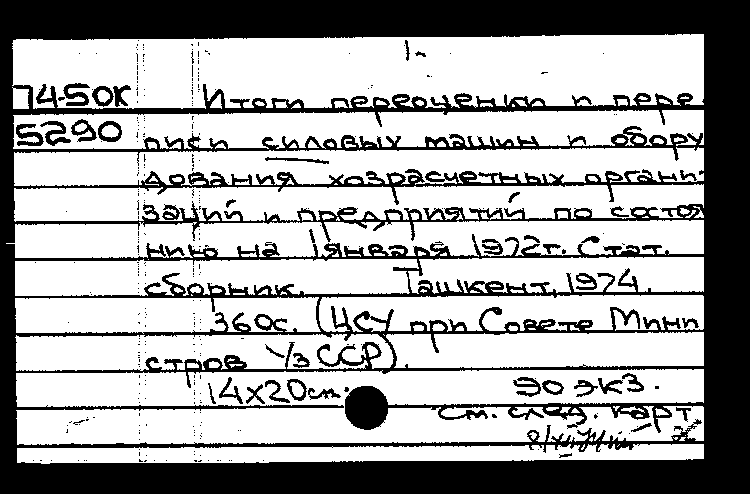 1.
74-50К Итоги переоценки и пере-
5290 писи силовых машин и обору
дования хозрасчетных органи-
заций и предприятий по состоя
нию на 1 января 1972г. Стат.
сборник. Ташкент, 1974.
360с. (ЦСУ при Совете Мини
стров УзССР).
14х20см. 90 экз.
См. след. карт